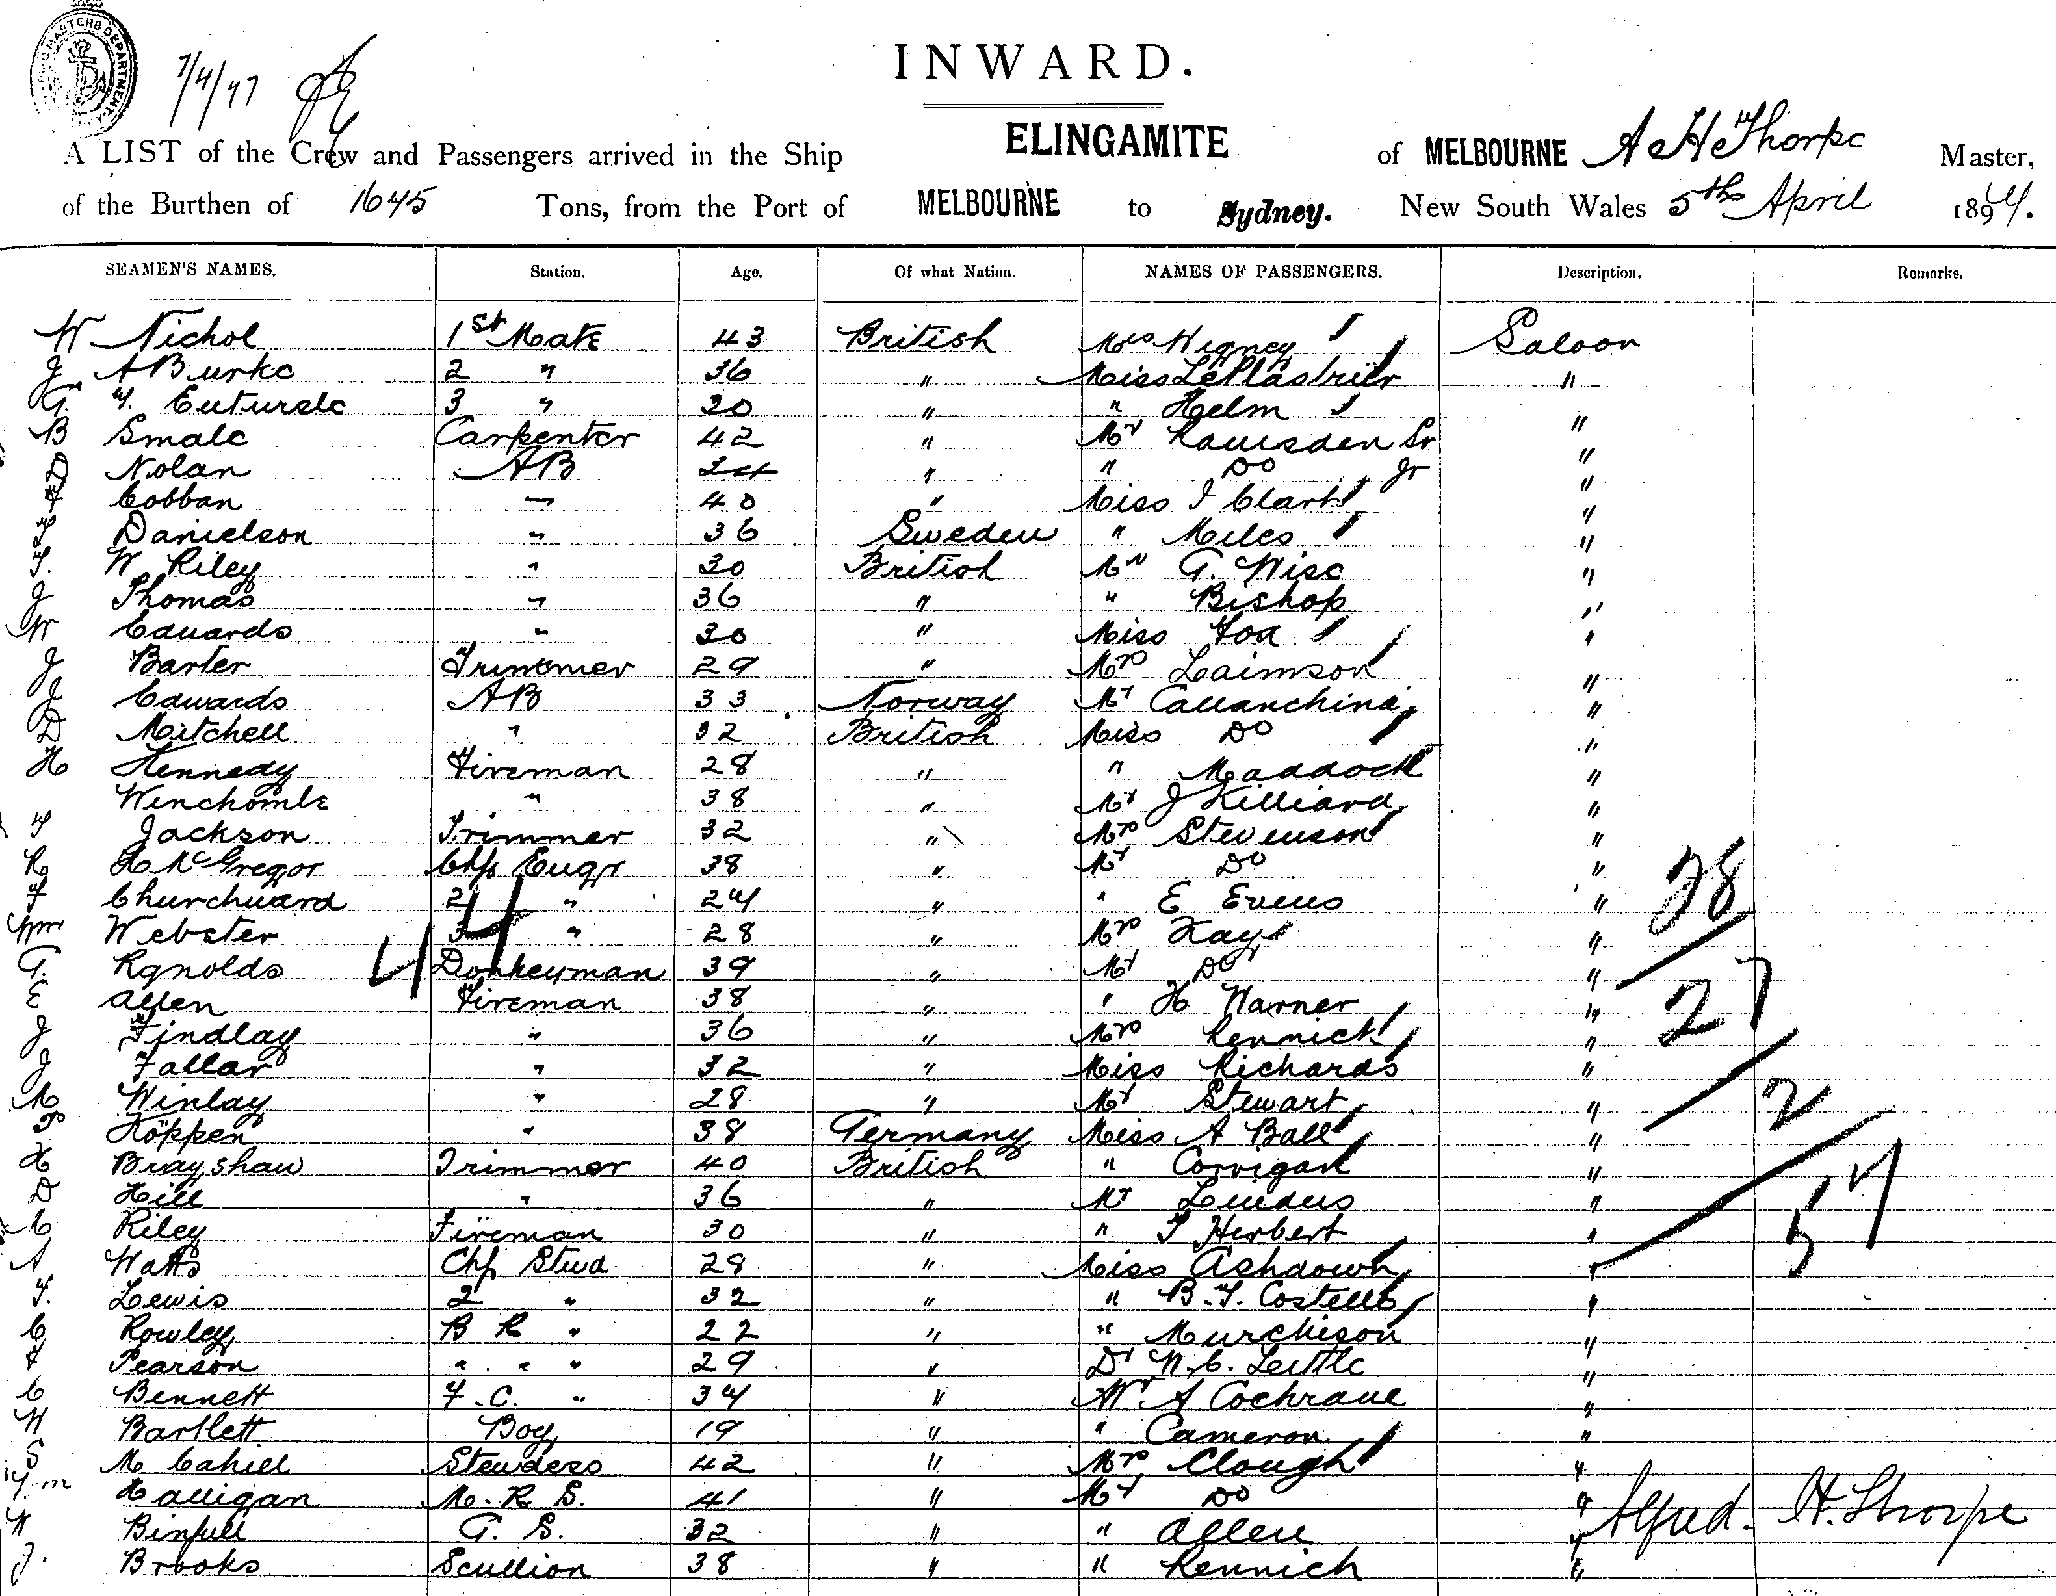 7/4/97
INWARD.
A LIST of the Crew and Passengers arrived in the Ship ELINGAMITE of MELBOURNE A H Thorpe Master,
of the Burthen of 1645 Tons, from the Port of MELBOURNE to Sydney. New South Wales 5th April 1897.
SEAMEN'S NAMES. Station. Age. Of what Nation. NAMES OF PASSENGERS. Description. Remarks.
W Nichol 1st Mate 43 British Mrs Wigney Saloon
J A Burke 2 " 36 " Miss LePlastrier "
G. F. 3 " 30 " " Helm "
B Smale Carpenter 42 " Mr Ramsden Sr "
D Nolan AB 34 " " Do Jr "
Cobban 40 " Miss I Clark "
Danielson " 36 Sweden " Miles "
F. W Riley " 30 British Mr G. Wise "
J Thomas " 36 " " Bishop "
W Edwards " 30 " Miss Fox "
J Barter Trimmer 29 " Mrs "
J Edwards AB 33 Norway Mr "
D Mitchell " 32 British Miss Do "
H Kennedy Fireman 28 " " Maddock "
Winchombe " 38 " Mr J Lilliard "
F Jackson Trimmer 32 " Mrs Stevenson "
R L McGregor Chf Engr 38 " Mr Do "
F Churchward 2 " 24 " " E Evens " 28
Wm Webster 3 " 28 " Mrs Kay "
G. Rgnolds Donkeyman 39 " Mr Do "
E Allen Fireman 38 " " H Warner " 27
J Findlay " 36 " Mrs Rennick "
J Fallar " 32 " Miss Richards "
M Winlay " 28 " Mr Stewart " 2
Köppen " 38 Germany Miss A Ball "
H Brayshaw Trimmer 40 British " Corrigan "
D Hill " 36 " Mr " 57
Riley Fireman 30 " " T Herbert "
A Watts Chf Stwd 28 " Miss Ashdown "
F. Lewis 2 " 32 " " B. F. Costello "
C Rowley B R " 22 " " Murchison "
F Pearson " " " 29 " Dr W. C. Little "
C Bennett F. C. " 34 " Mr A Cochrane "
W Bartlett Boy 19 " " Cameron "
S M Cahill Stewdess 42 " Mrs Clough "
Halligan M. R S. 41 " Mr Do "
W Binfull G. S. 32 " " Allen " Alfred. H. Thorpe
J. Brooks Scullion 38 " " Rennick "